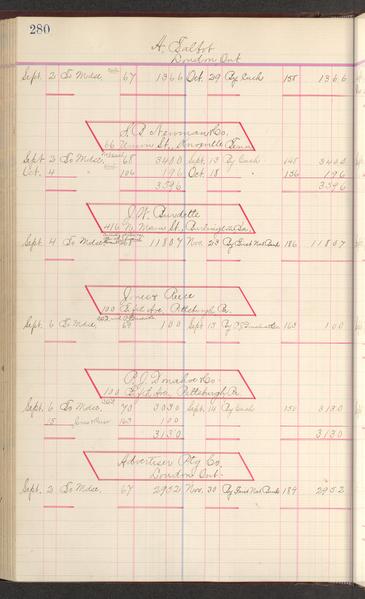 280
A. Talbot
London Ont
Sept. 2 To Mdse 67 1366 Oct. 29 By Cash 158 1366
Newman & Co.
66 Union St., Knoxville Tenn
Sept 2 To Mdse, 68 3400 Sept. 13 By Cash 148 3400
Oct. 4 " 106 196 Oct. 18 " 156 196
3596 3596
J. W. Burdette
416 N. Main St., Burlington Ia.
Sept. 4 To Mdse 68 11807 Nov. 23 By First Nat Bank 186 11807
Jones &
100 Fifth Ave., Pittsburgh Pa.
Sept. 6 To Mdse, 69 100 Sept 13 By 163 100
P. J. Donahue & Co.
100 Fifth Ave, Pittsburgh Pa
Sept. 6 To Mdse. 70 3030 Sept. 14 By Cash 150 3130
15 163 100
3130 3130
Advertiser Ptg Co.
London Ont.
Sept. 2 To Mdse. 67 2952 Nov. 30 By First Nat Bank 189 2952